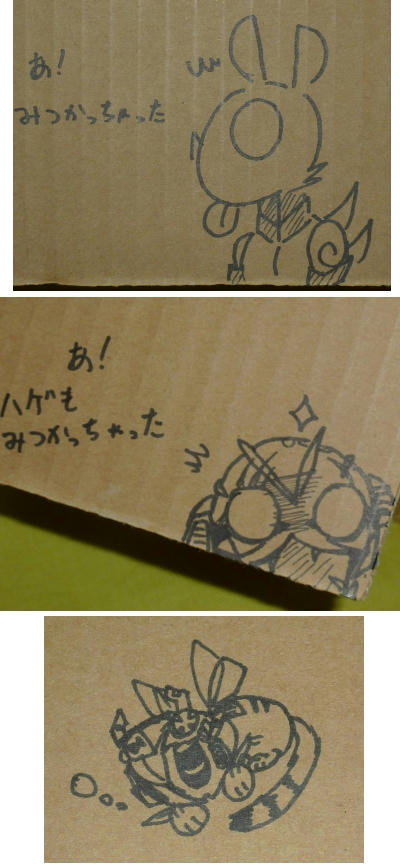 あ!
みつかっちゃった
あ!
ハゲも
みつかっちゃった